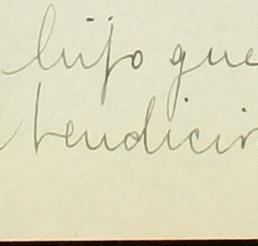 hijo que
bendicin